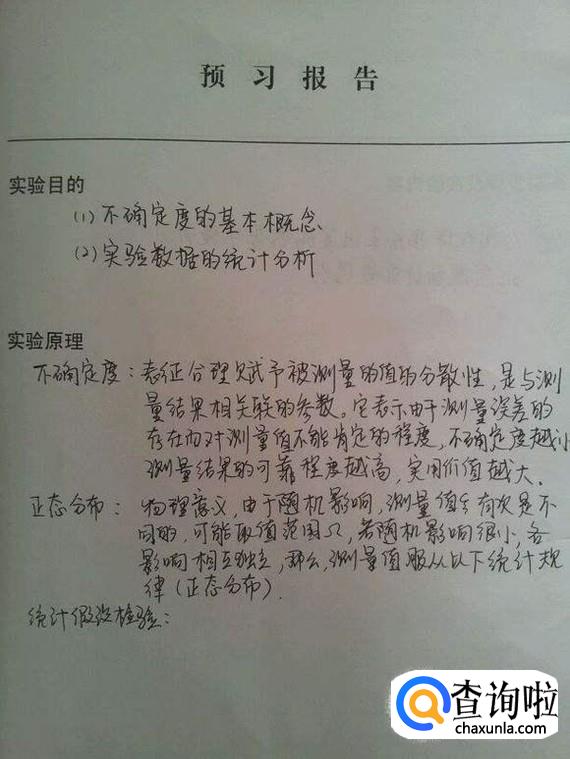 预习报告
实验目的
(1) 不确定度的基本概念
(2) 实验数据的统计分析
实验原理
不确定度：表征合理赋予被测量的值的分散性，是与测
量结果相关联的参数。它表示由于测量误差的
存在而对测量值不能肯定的程度，不确定度越小
测量结果的可靠程度越高，实用价值越大。
正态分布：物理意义，由于随机影响，测量值每次是不
同的，可能取值范围Ω，若随机影响很小，各
影响相互独立，那么，测量值服从以下统计规
律（正态分布）.
统计假设检验：
查询啦
chaxunla.com